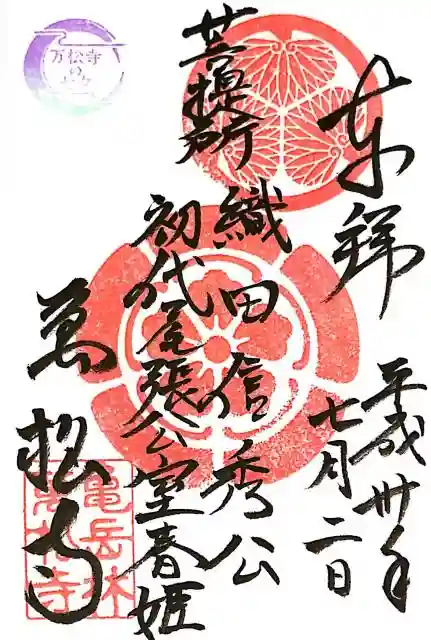 奉拝
平成卅年
七月二日
菩提所
織田信秀公
初代尾張公室春姫
萬松寺
亀岳林
萬松寺
万松寺
の